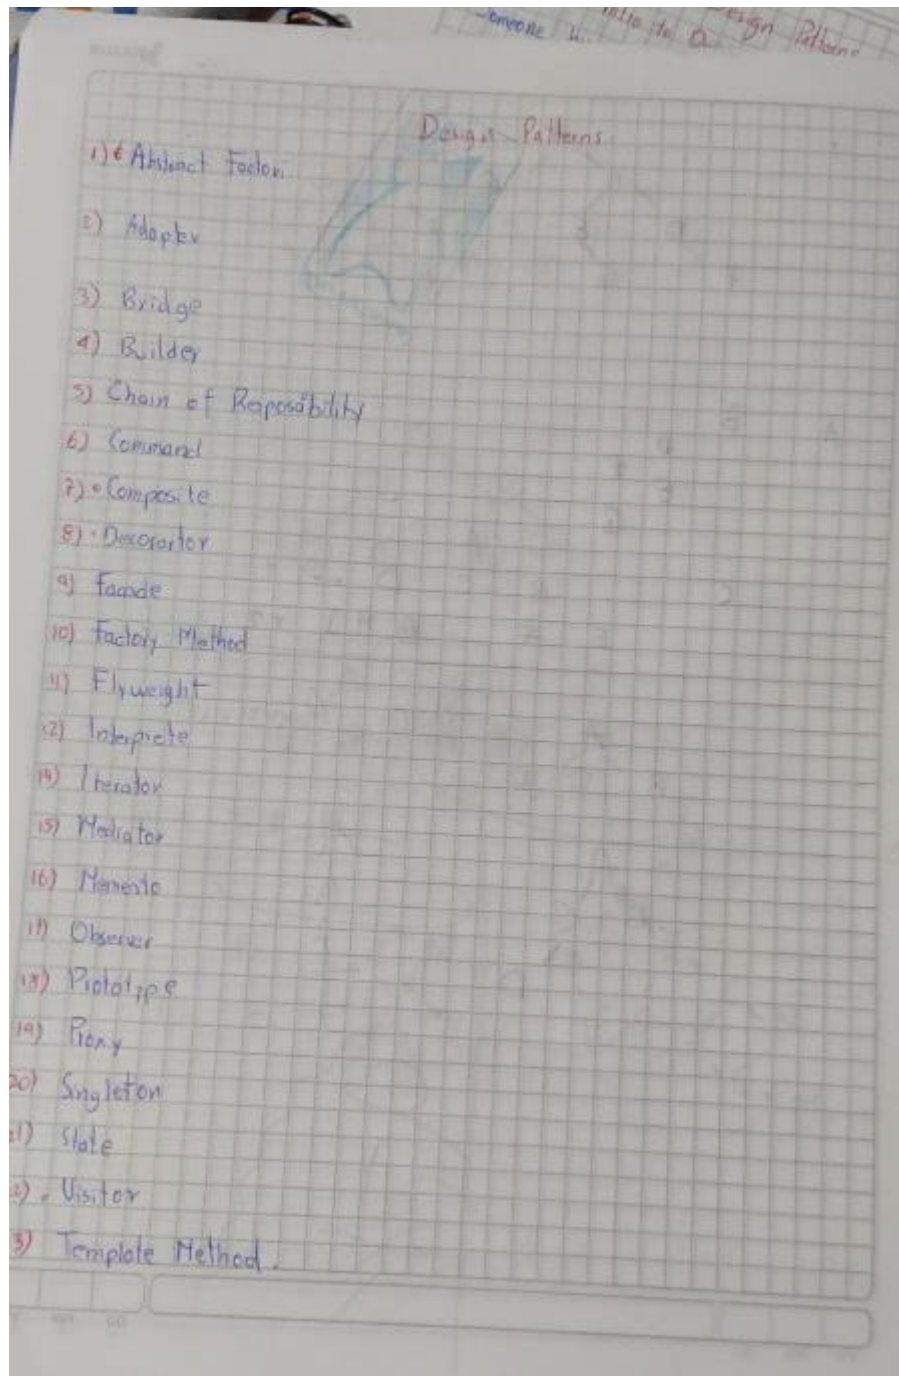 Someone
into to a Design Pattern
Design Patterns
1) Abstract Factory
2) Adapter
3) Bridge
4) Builder
5) Chain of Resposability
6) Command
7) • Composite
8) • Decorartor
9) Facade
10) Factory Method
11) Flyweight
12) Interprete
14) Iterator
15) Mediator
16) Memento
17) Observer
18) Prototype
19) Proxy
20) Singleton
1) State
2) • Visitor
3) Template Method.